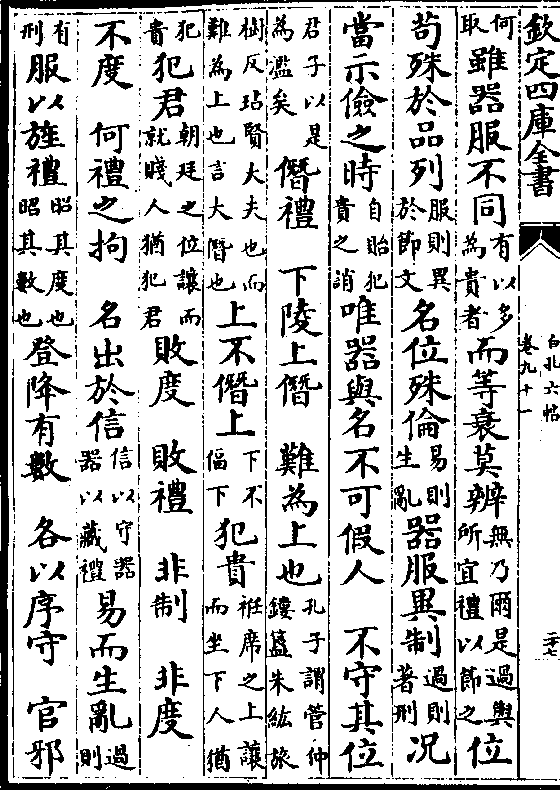 欽定四庫全書 白孔六帖 卷九十一
何取雖器服不同有以多為貴者而等衰莫辨無乃爾是過與所宜禮以節之位
苟殊於品列服則異於節文名位殊倫易則生亂器服異制過則著刑況
當示儉之時自貽犯貴之誚唯器與名不可假人 不守其位
君子以是為濫矣僭禮 下陵上僭 難為上也孔子謂管仲鏤簋朱紘旅
樹反坫賢大夫也而難為上也言大僭也上不僭上下不偪下犯貴袵席之上讓而坐下人猶
犯貴犯君朝廷之位讓而就賤人猶犯君敗度 敗禮 非制 非度
不度 何禮之拘 名出於信信以守器器以藏禮易而生亂過則
有刑服以旌禮昭其度也昭其數也登降有數 各以序守 官邪